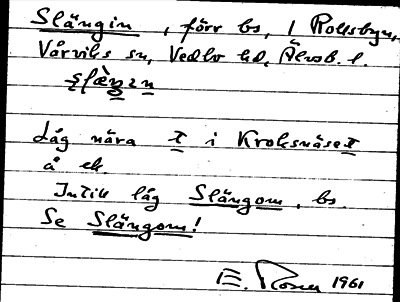 Slängin, förr bs, i Rollsbyn,
Vårviks sn, Vedbo hd, Älvsb. l.
Låg nära t i Kroksnäset
å ek.
Intill låg Slängom, bs.
Se Slängom!
E. Rosell 1961